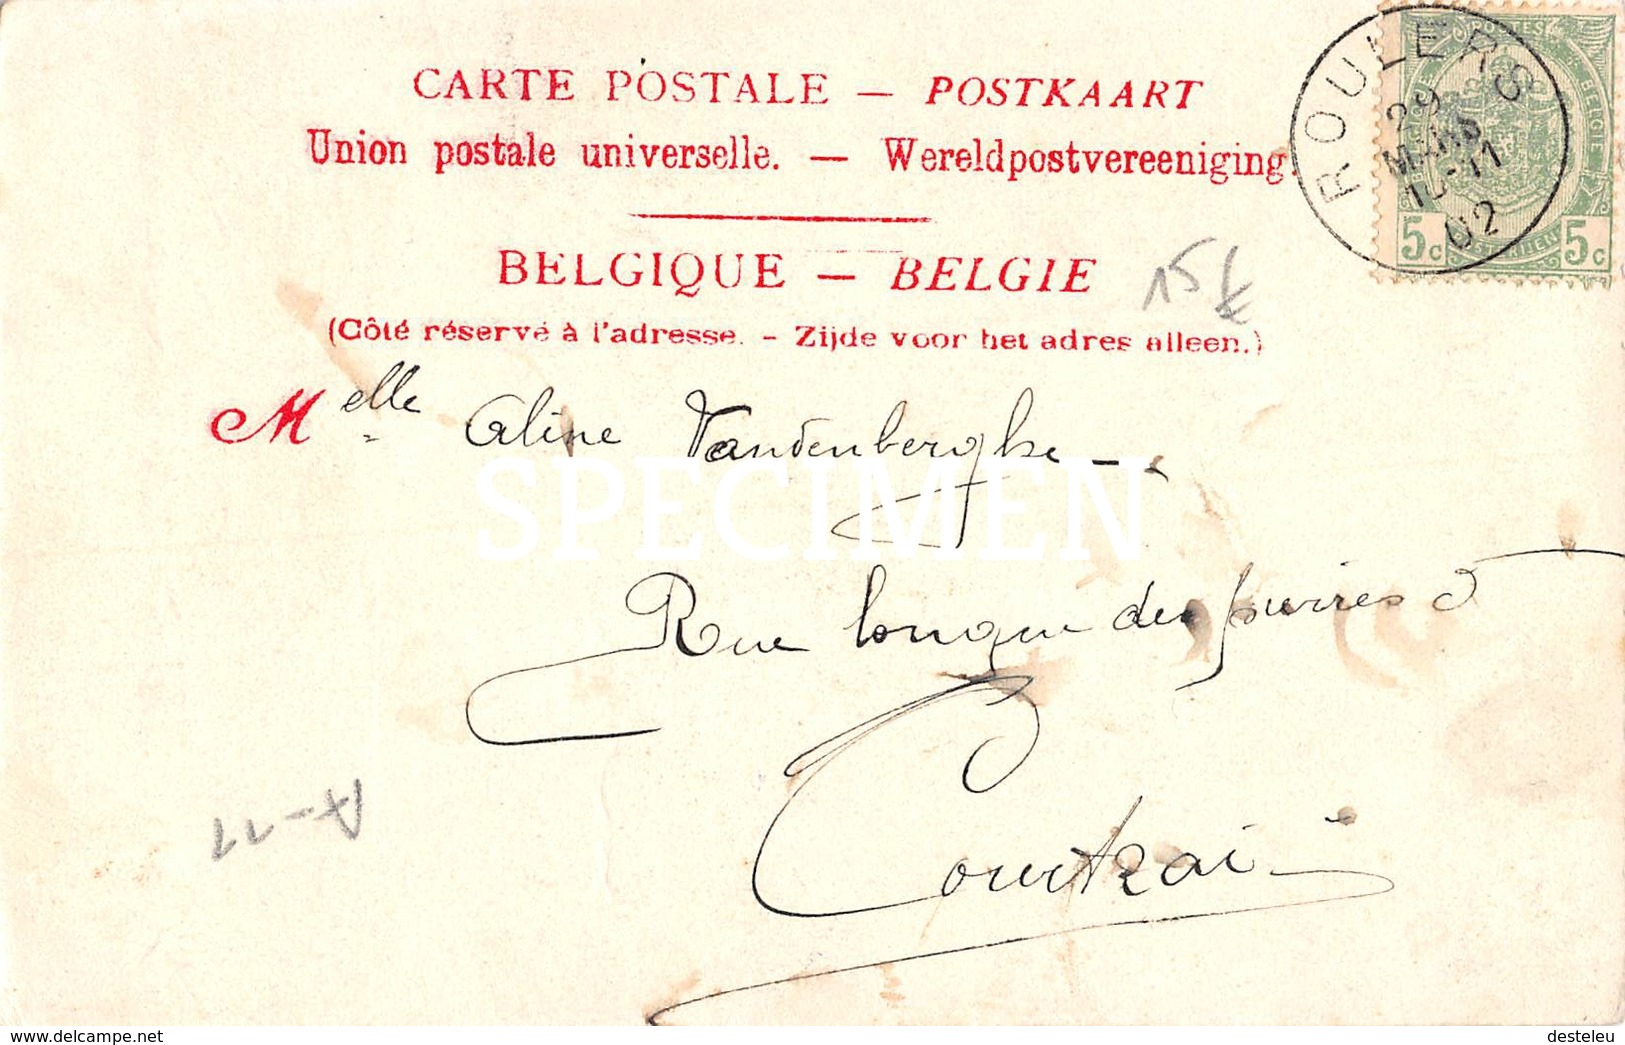 CARTE POSTALE — POSTKAART
Union postale universelle. — Wereldpostvereeniging.
BELGIQUE — BELGIE
(Côté réservé à l'adresse. - Zijde voor het adres alleen.)
ROULERS
29
MARS
10-11
02
POSTES
BELGIE
5c
5c
15 €
Melle Aline Vandenberghe
SPECIMEN
Rue longue des
Courtrai
A-11
www.delcampe.net
desteleu